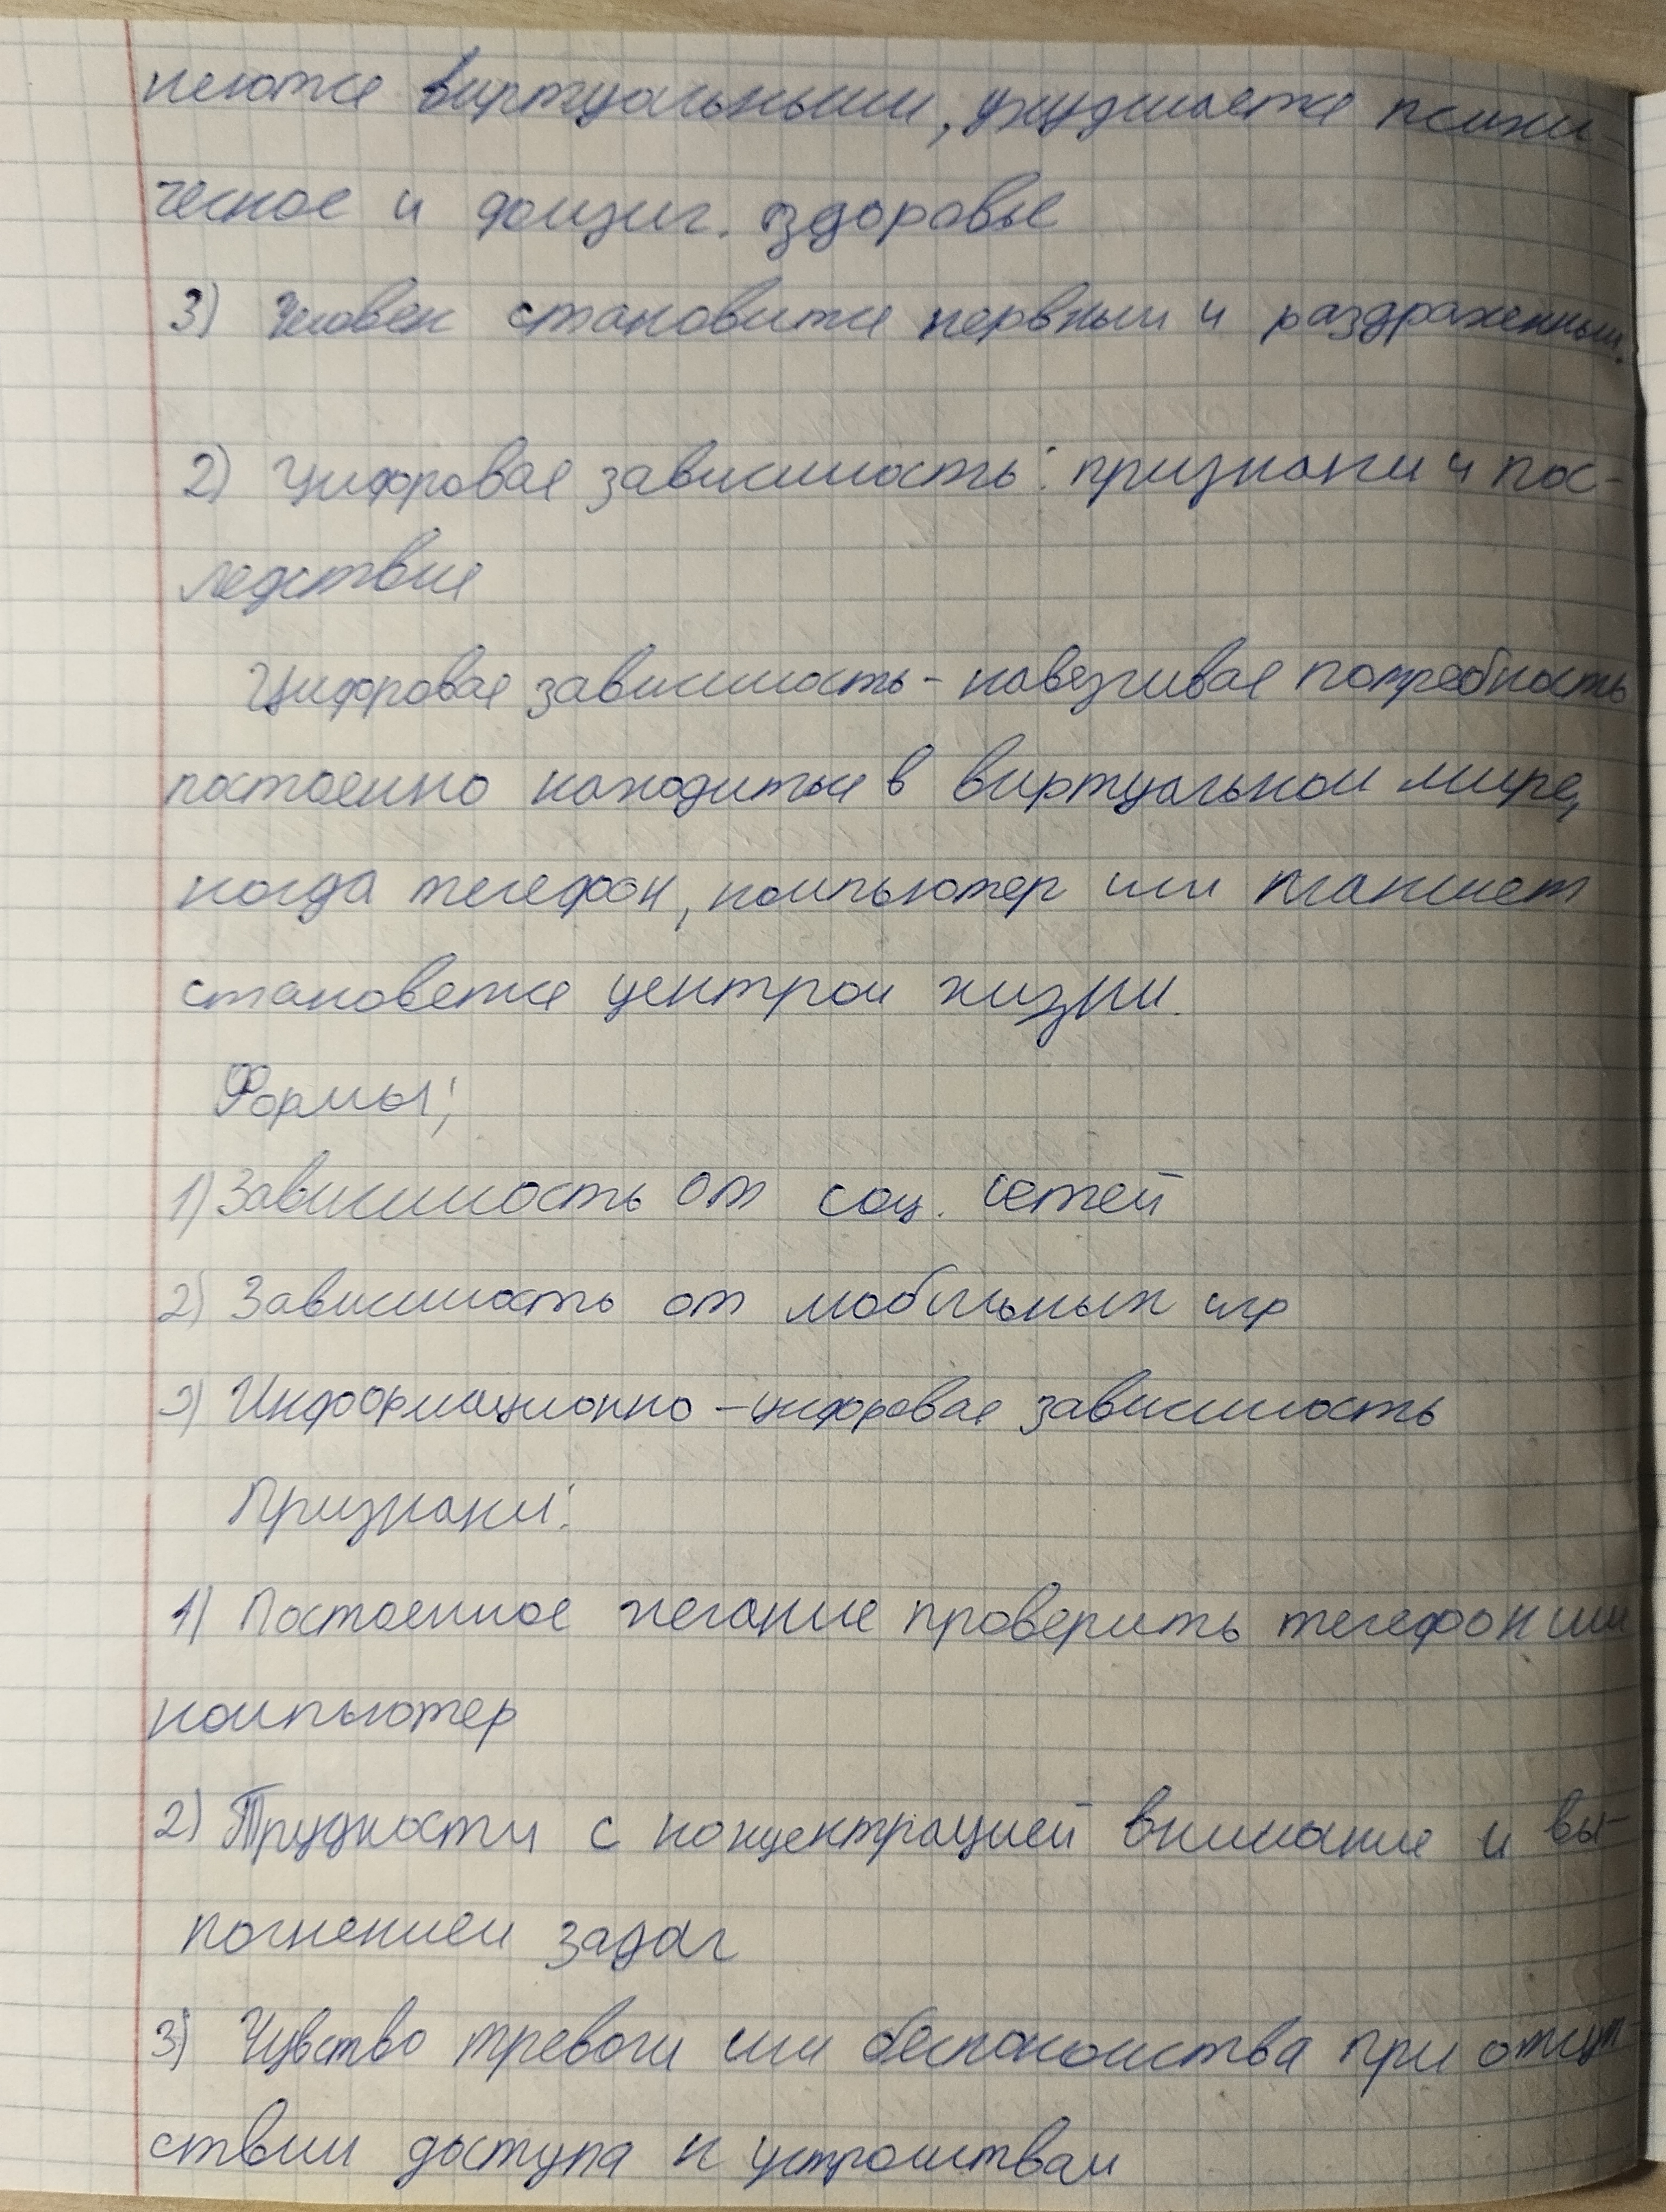 няются виртуальными, ухудшается психи-
ческое и физич. здоровье
3) Человек становится нервным и раздраженным.
2) Цифровая зависимость: признаки и пос-
ледствия
Цифровая зависимость - навязчивая потребность
постоянно находиться в виртуальном мире,
когда телефон, компьютер или планшет
становятся центром жизни.
Формы:
1) Зависимость от соц. сетей
2) Зависимость от мобильных игр
3) Информационно - цифровая зависимость
Признаки:
1) Постоянное желание проверить телефон или
компьютер
2) Трудности с концентрацией внимания и вы-
полнением задач
3) Чувство тревоги или беспокойства при отсут-
ствии доступа к устройствам